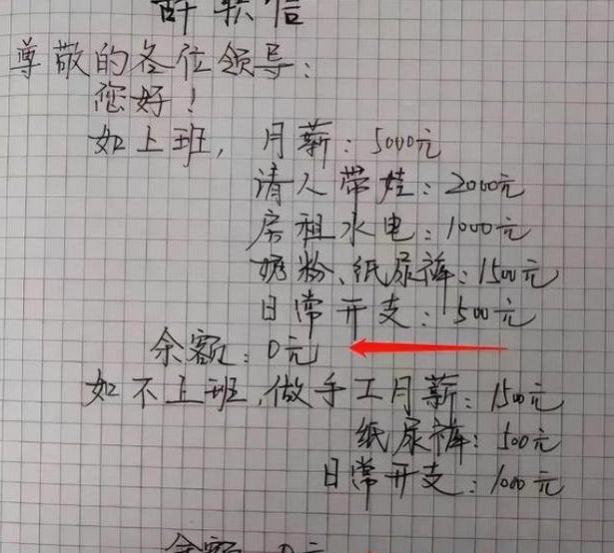 辞职信
尊敬的各位领导:
您好!
如上班,月薪:5000元
请人带娃:2000元
房租水电:1000元
奶粉、纸尿裤:1500元
日常开支:500元
余额:0元
如不上班,做手工月薪:1500元
纸尿裤:500元
日常开支:1000元
余额:0元